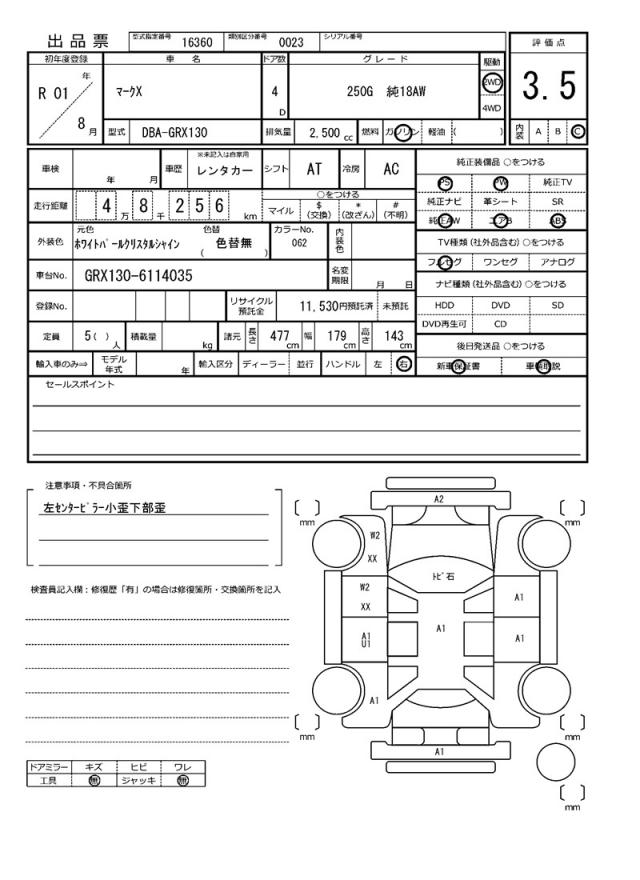 出品票 型式指定番号 16360 類別区分番号 0023 シリアル番号
評価点
3.5
内装 A B C
初年度登録 車名 ドア数 グレード 駆動
R 01 年 8 月
マークX
4 D
250G 純18AW
2WD
4WD
型式 DBA-GRX130 排気量 2,500 cc 燃料 ガソリン 軽油 ( )
車検 年 月 車歴 ※未記入は自家用 レンタカー シフト AT 冷房 AC
走行距離 4 万 8 千 2 5 6 km
○をつける
マイル $(交換) *(改ざん) #(不明)
外装色 元色 ホワイトパールクリスタルシャイン 色替 ( 色替無 ) カラーNo. 062 内装色
車台No. GRX130-6114035 名変期限 月 日
登録No. リサイクル預託金 11,530円預託済 未預託
定員 5( ) 人 積載量 kg 諸元 長さ 477 cm 幅 179 cm 高さ 143 cm
輸入車のみ⇒ モデル年式 年 輸入区分 ディーラー 並行 ハンドル 左 右
純正装備品 ○をつける
PS PW 純正TV
純正ナビ 革シート SR
純正AW エアB ABS
TV種類(社外品含む)○をつける
フルセグ ワンセグ アナログ
ナビ種類(社外品含む)○をつける
HDD DVD SD
DVD再生可 CD
後日発送品 ○をつける
新車保証書 車輌取説
セールスポイント
注意事項・不具合箇所
左センターピラー小歪下部歪
検査員記入欄:修復歴「有」の場合は修復箇所・交換箇所を記入
ドアミラー キズ ヒビ ワレ
工具 無 ジャッキ 無
A2
mm
mm
W2
XX
トビ石
W2
XX
A1
A1
U1
A1
A1
A1
A1
mm
mm
A1
mm